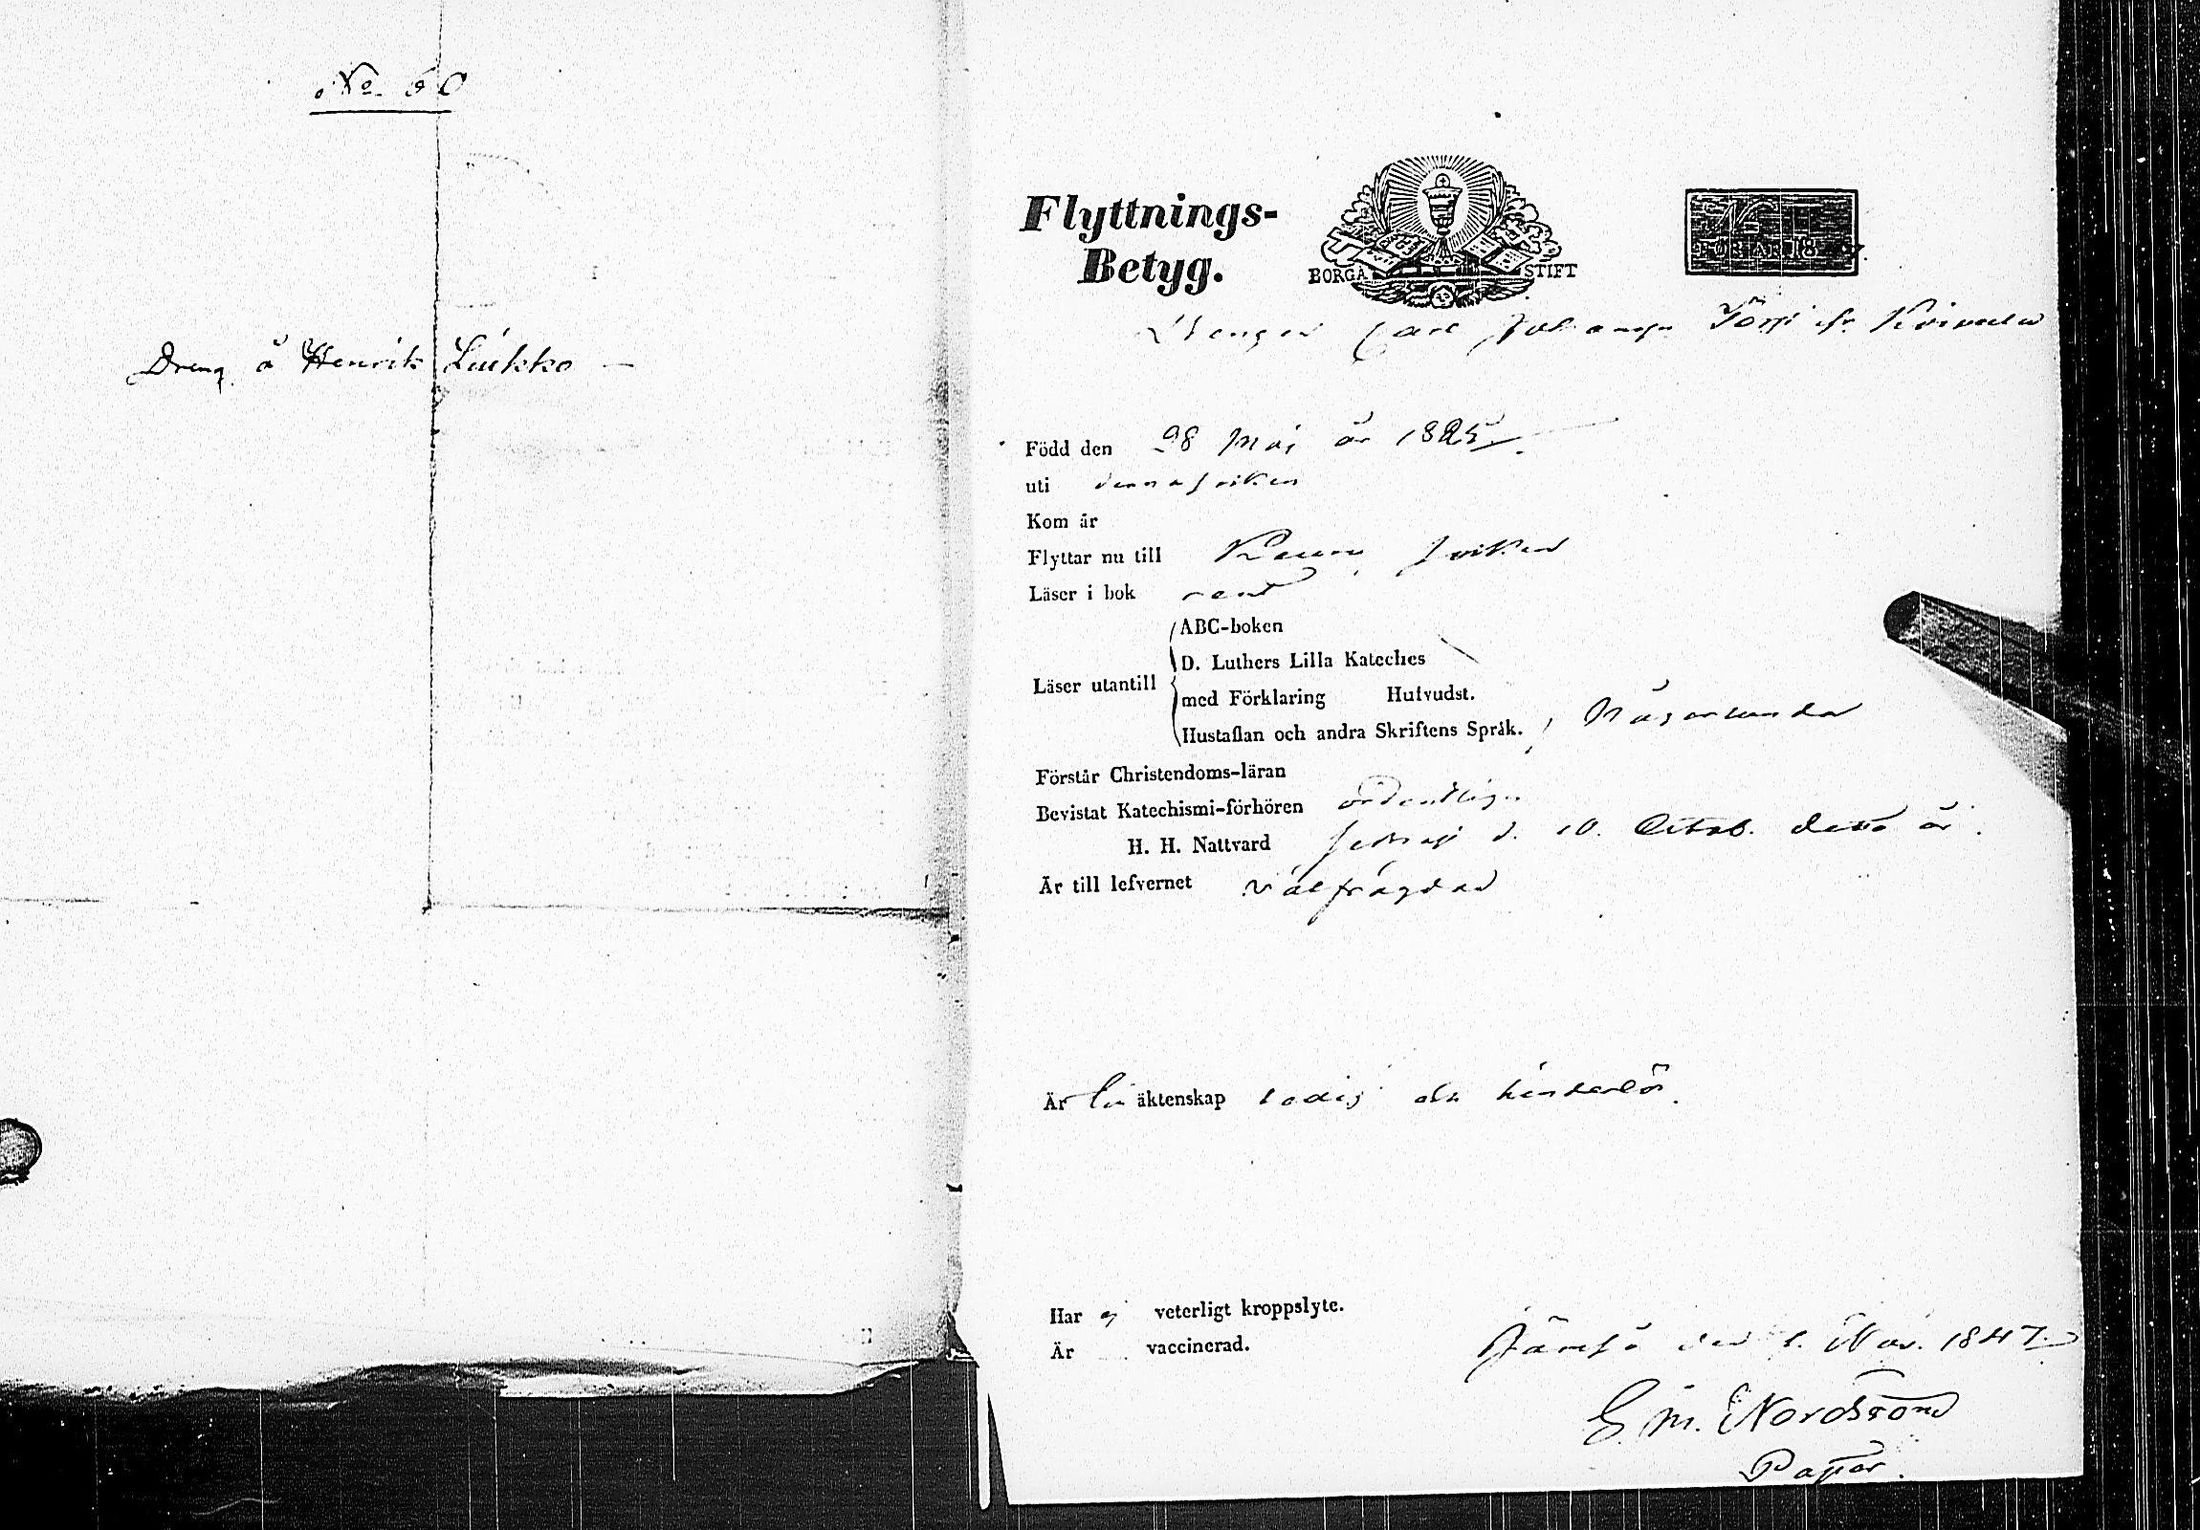 No. 60
Dreng å Henrik Luikko —
Flyttnings-
Betyg.
BORGÅ STIFT
N
FÖR ÅR 1847.
Drengen Carl Johansson Jörri fr. Koivula
Född den 28 Maj år 1825.
uti denna socken
Kom år
Flyttar nu till Keuru socken
Läser i bok rent
ABC-boken
D. Luthers Lilla Kateches
Läser utantill
med Förklaring Hufvudst.
Hustaflan och andra Skriftens Språk. någorlunda
Förstår Christendoms-läran
Bevistat Katechismi-förhören ordentligen
H. H. Nattvard sednast d. 10. Octob. detta år.
Är till lefvernet välfrägdad
Är till äktenskap ledig och hinderlös.
Har ej veterligt kroppslyte.
Är vaccinerad.
Jämsä den 1. Nov. 1847.
E. M. Nordström
Pastor.